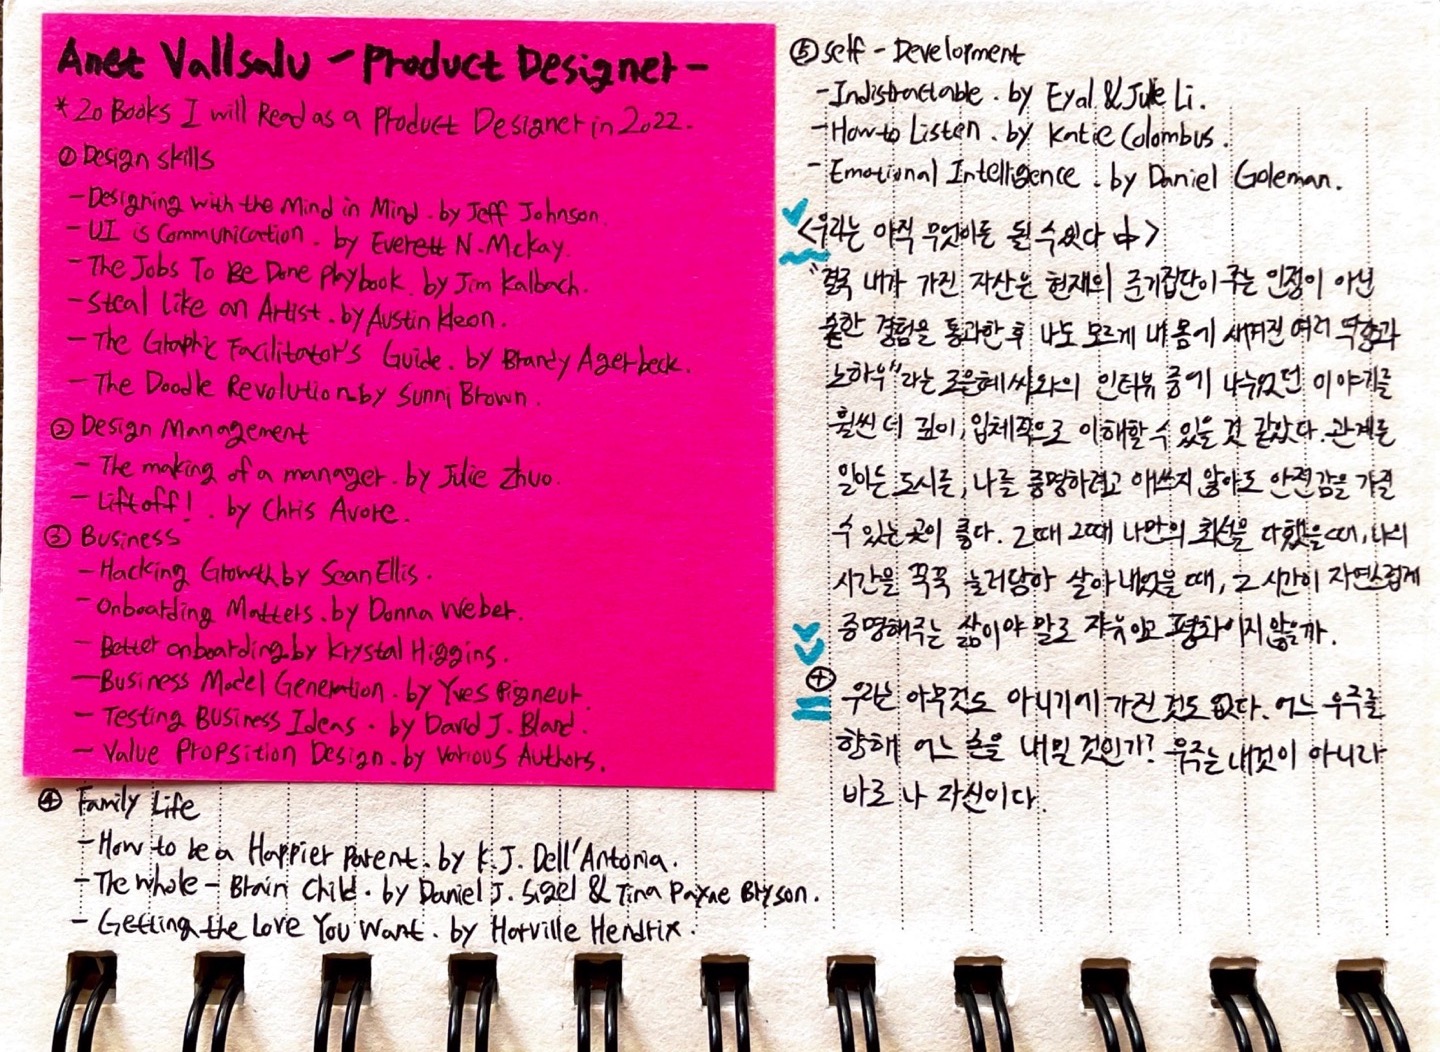 Anet Vallsalu - Product Designer -
* 20 Books I will Read as a Product Designer in 2022.
① Design skills
- Designing with the Mind in Mind. by Jeff Johnson.
- UI is Communication. by Everett N. Mckay.
- The Jobs To Be Done Playbook. by Jim Kalbach.
- Steal Like an Artist. by Austin kleon.
- The Graphic Facilitator's Guide. by Brandy Agerbeck.
- The Doodle Revolution. by Sunni Brown.
② Design Management
- The making of a manager. by Julie Zhuo.
- Liftoff! . by Chris Avore.
③ Business
- Hacking Growth by Sean Ellis.
- Onboarding Matters. by Donna Weber.
- Better onboarding. by Krystal Higgins.
- Business Model Generation. by Yves Pigneur.
- Testing Business Ideas. by David J. Bland.
- Value Propsition Design. by Various Authors.
④ Family Life
- How to be a Happier Parent. by K.J. Dell'Antonia.
- The whole - Brain Child. by Daniel J. Sigel & Tina Payne Bryson.
- Getting the Love You Want. by Harville Hendrix.
⑤ self - Development
- Indistractable. by Eyal & Julie Li.
- How to Listen. by Katie Colombus.
- Emotional Intelligence. by Daniel Goleman.
<우리는 아직 무엇이든 될 수 있다 中>
"결국 내가 가진 자산은 현재의 준거집단이 주는 인정이 아닌
숱한 경험을 통과한 후 나도 모르게 내 몸에 새겨진 여러 역량과
노하우"라는 로은혜씨와의 인터뷰 중에 나눴었던 이야기를
훨씬 더 깊이, 입체적으로 이해할 수 있을 것 같았다. 관계든
일이든 도시든, 나를 증명하려고 애쓰지 않아도 안전감을 가질
수 있는 곳이 좋다. 그때 그때 나만의 최선을 다했을 때, 나의
시간을 꾹꾹 눌러담아 살아 내었을 때, 그 시간이 자연스럽게
증명해주는 삶이야 말로 자유이고 평화이지 않을까.
우리는 아무것도 아니기에 가진 것도 없다. 어느 우주를
향해 어느 손을 내밀 것인가? 우주는 내것이 아니라
바로 나 자신이다.